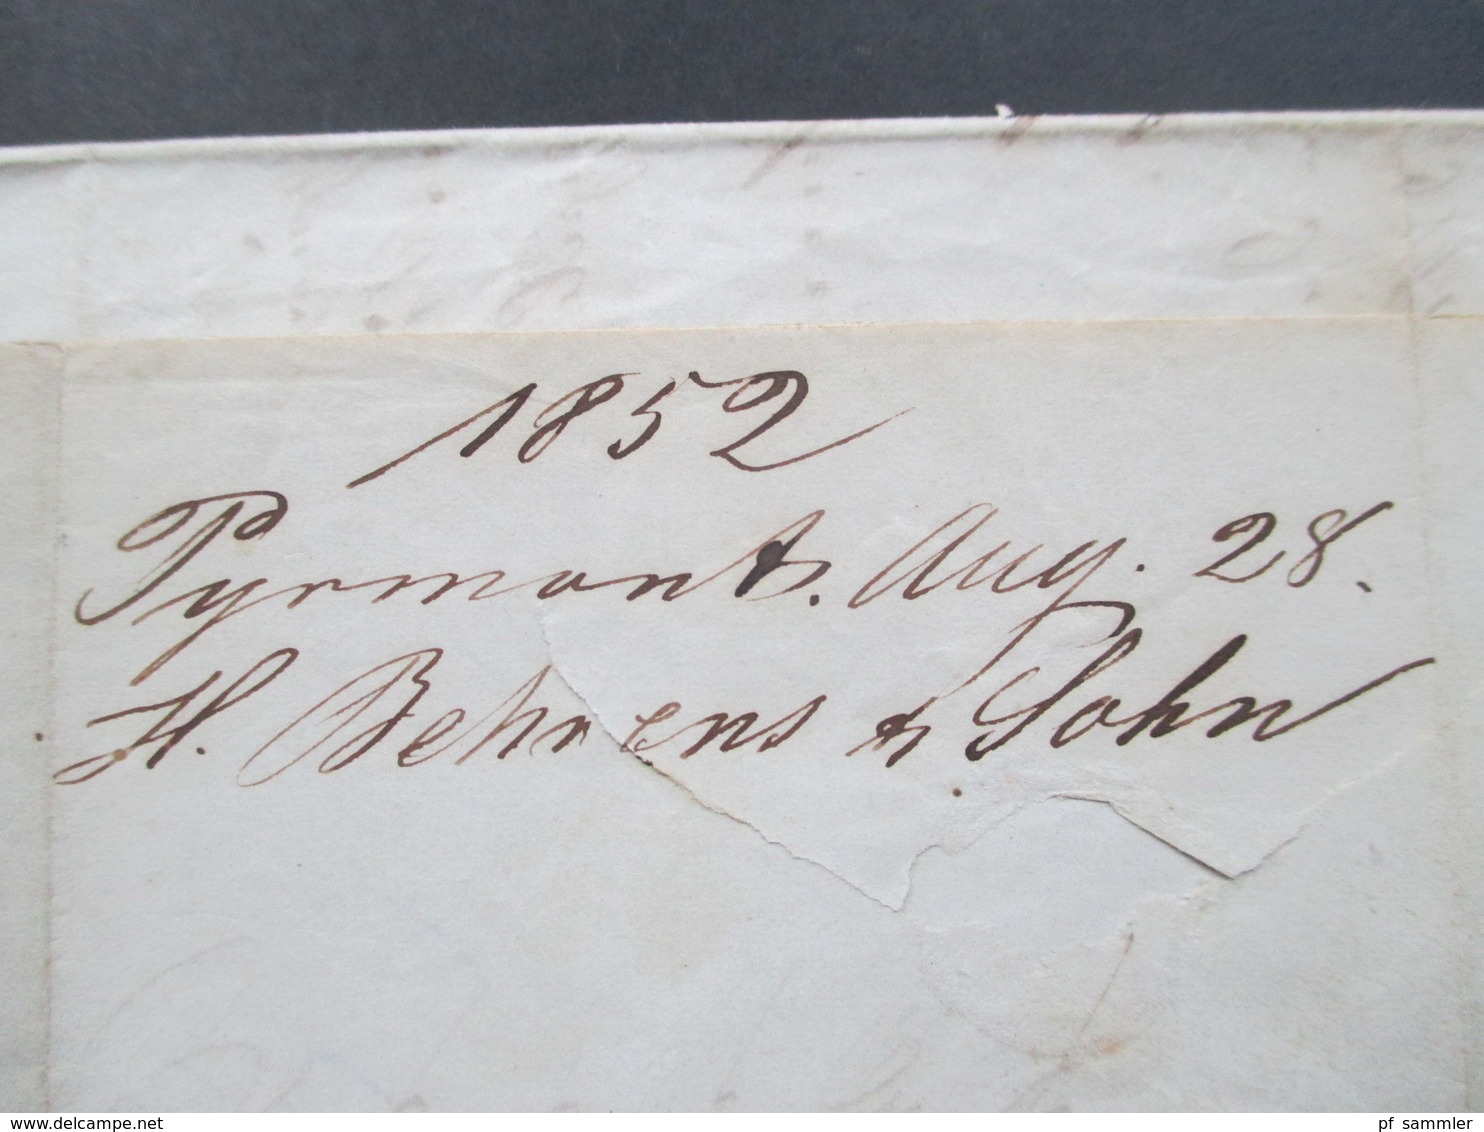 1852
Pyrmont. Aug. 28.
H. Behrens & Sohn
© DELCAMPE.NET
pf_sammler